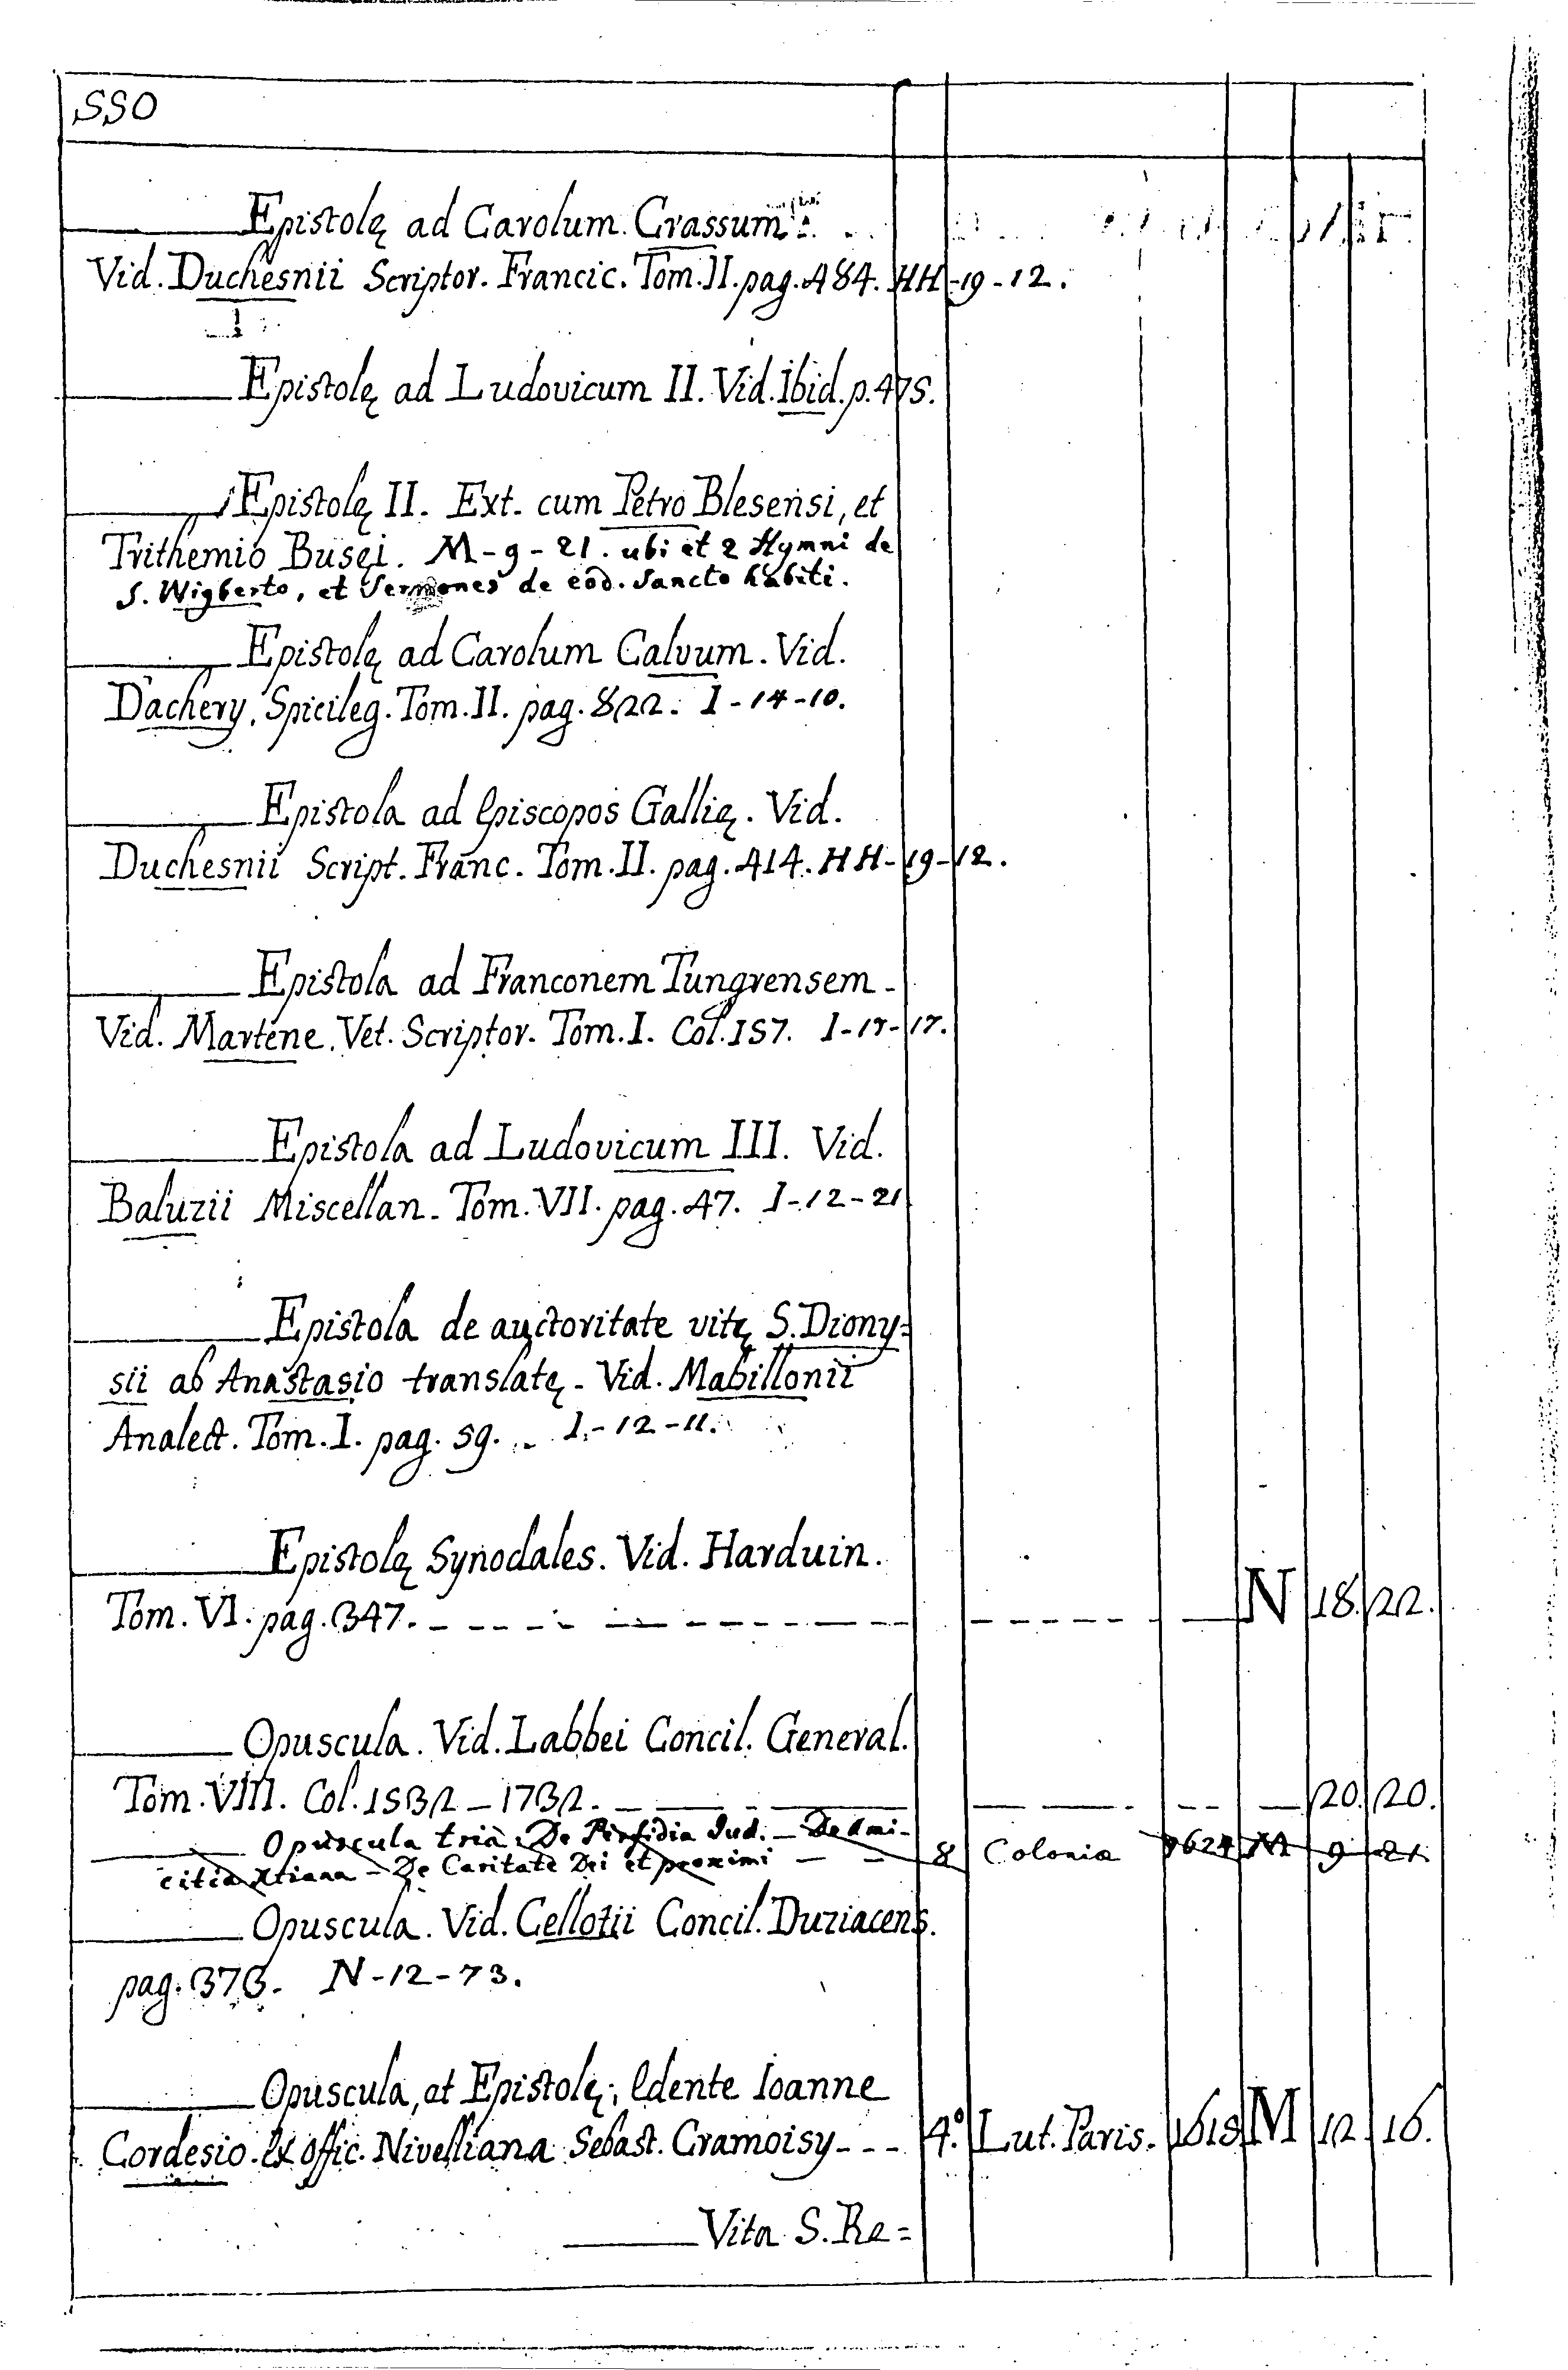 550
——— Epistolę ad Carolum Crassum
Vid. Duchesnii Scriptor. Francic. Tom. II. pag. 484. HH-19-12.
——— Epistolę ad Ludovicum II. Vid. Ibid. p. 475.
——— Epistolę II. Ext. cum Petro Blesensi, et
Trithemio Busęi. M-9-21. ubi et 2 Hymni de
S. Wigberto, et Sermones de eod. Sancto habiti.
——— Epistolę ad Carolum Calvum. Vid.
Dachery, Spicileg. Tom. II. pag. 822. I-14-10.
——— Epistola ad Episcopos Gallię. Vid.
Duchesnii Script. Franc. Tom. II. pag. 414. HH-19-12.
——— Epistola ad Franconem Tungrensem.
Vid. Martene. Vet. Scriptor. Tom. I. Col. 157. I-17-17.
——— Epistola ad Ludovicum III. Vid.
Baluzii Miscellan. Tom. VII. pag. 47. I-12-21
——— Epistola de auctoritate vitę S. Diony=
sii ab Anastasio translatę. Vid. Mabillonii
Analect. Tom. I. pag. 59. I-12-11.
——— Epistolę Synodales. Vid. Harduin.
Tom. VI. pag. 347. N 18. 22.
——— Opuscula. Vid. Labbei Concil. General.
Tom. VIII. Col. 1532 – 1732. — 20. 20.
——— Opuscula tria. De Perfidia Jud. – De Ami-
citia Xtiana – De Caritate Dei et proximi — 8 Colonia 1624 M 9 21.
——— Opuscula. Vid. Cellotii Concil. Duziacens.
pag. 373. N-12-73.
——— Opuscula, et Epistolę; Edente Ioanne
Cordesio. Ex offic. Nivelliana Sebast. Cramoisy--- 4.º Lut. Paris. 1615 M 12. 16.
——— Vita S. Re=